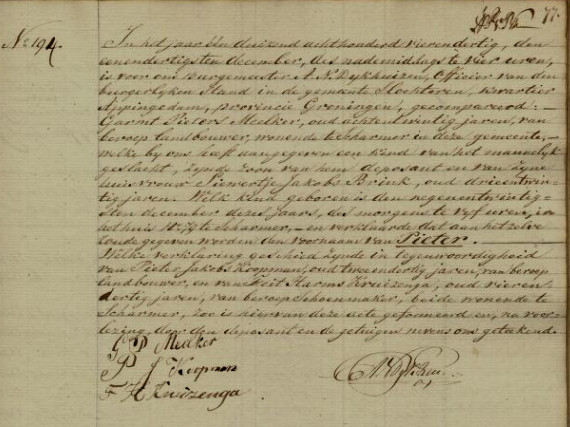 77.
No 194.
In het jaar één duizend achthonderd vierendertig, den
eenendertigsten december, des nademiddags te vier uren,
is voor ons Burgemeester A. N. Dykhuizen, Officier van den
burgerlyken Stand in de gemeente Slochteren, kwartier
Appingedam, provincie Groningen, gecompareerd:
Garmt Pieters Melker, oud achtentwintig jaren, van
beroep landbouwer, wonende te Scharmer in deze gemeente,
welke by ons heeft aangegeven een Kind van het mannelyk
geslacht, zynde zoon van hem deposant en van zyne
huisvrouw Siewertje Jakobs Brink, oud drieentwin-
tig jaren. Welk Kind geboren is den negenentwintig-
sten december dezes jaars, des morgens te vyf uren, in
het huis No. 79 te Scharmer, – en verklaarde dat aan hetzelve
zoude gegeven worden den voornaam van Pieter.
Welke verklaring geschied zynde in tegenwoordigheid
van Pieter Jakobs Koopman, oud tweendertig jaren, van beroep
landbouwer, en van Harms Kruizenga, oud vieren-
dertig jaren, van beroep Schoenmaker, beide wonende te
Scharmer, zoo is hiervan deze acte geformeerd en, na voor-
lezing, door den deposant en de getuigen nevens ons getekend.
G P Melker
P J Koopman
F H Kruizenga